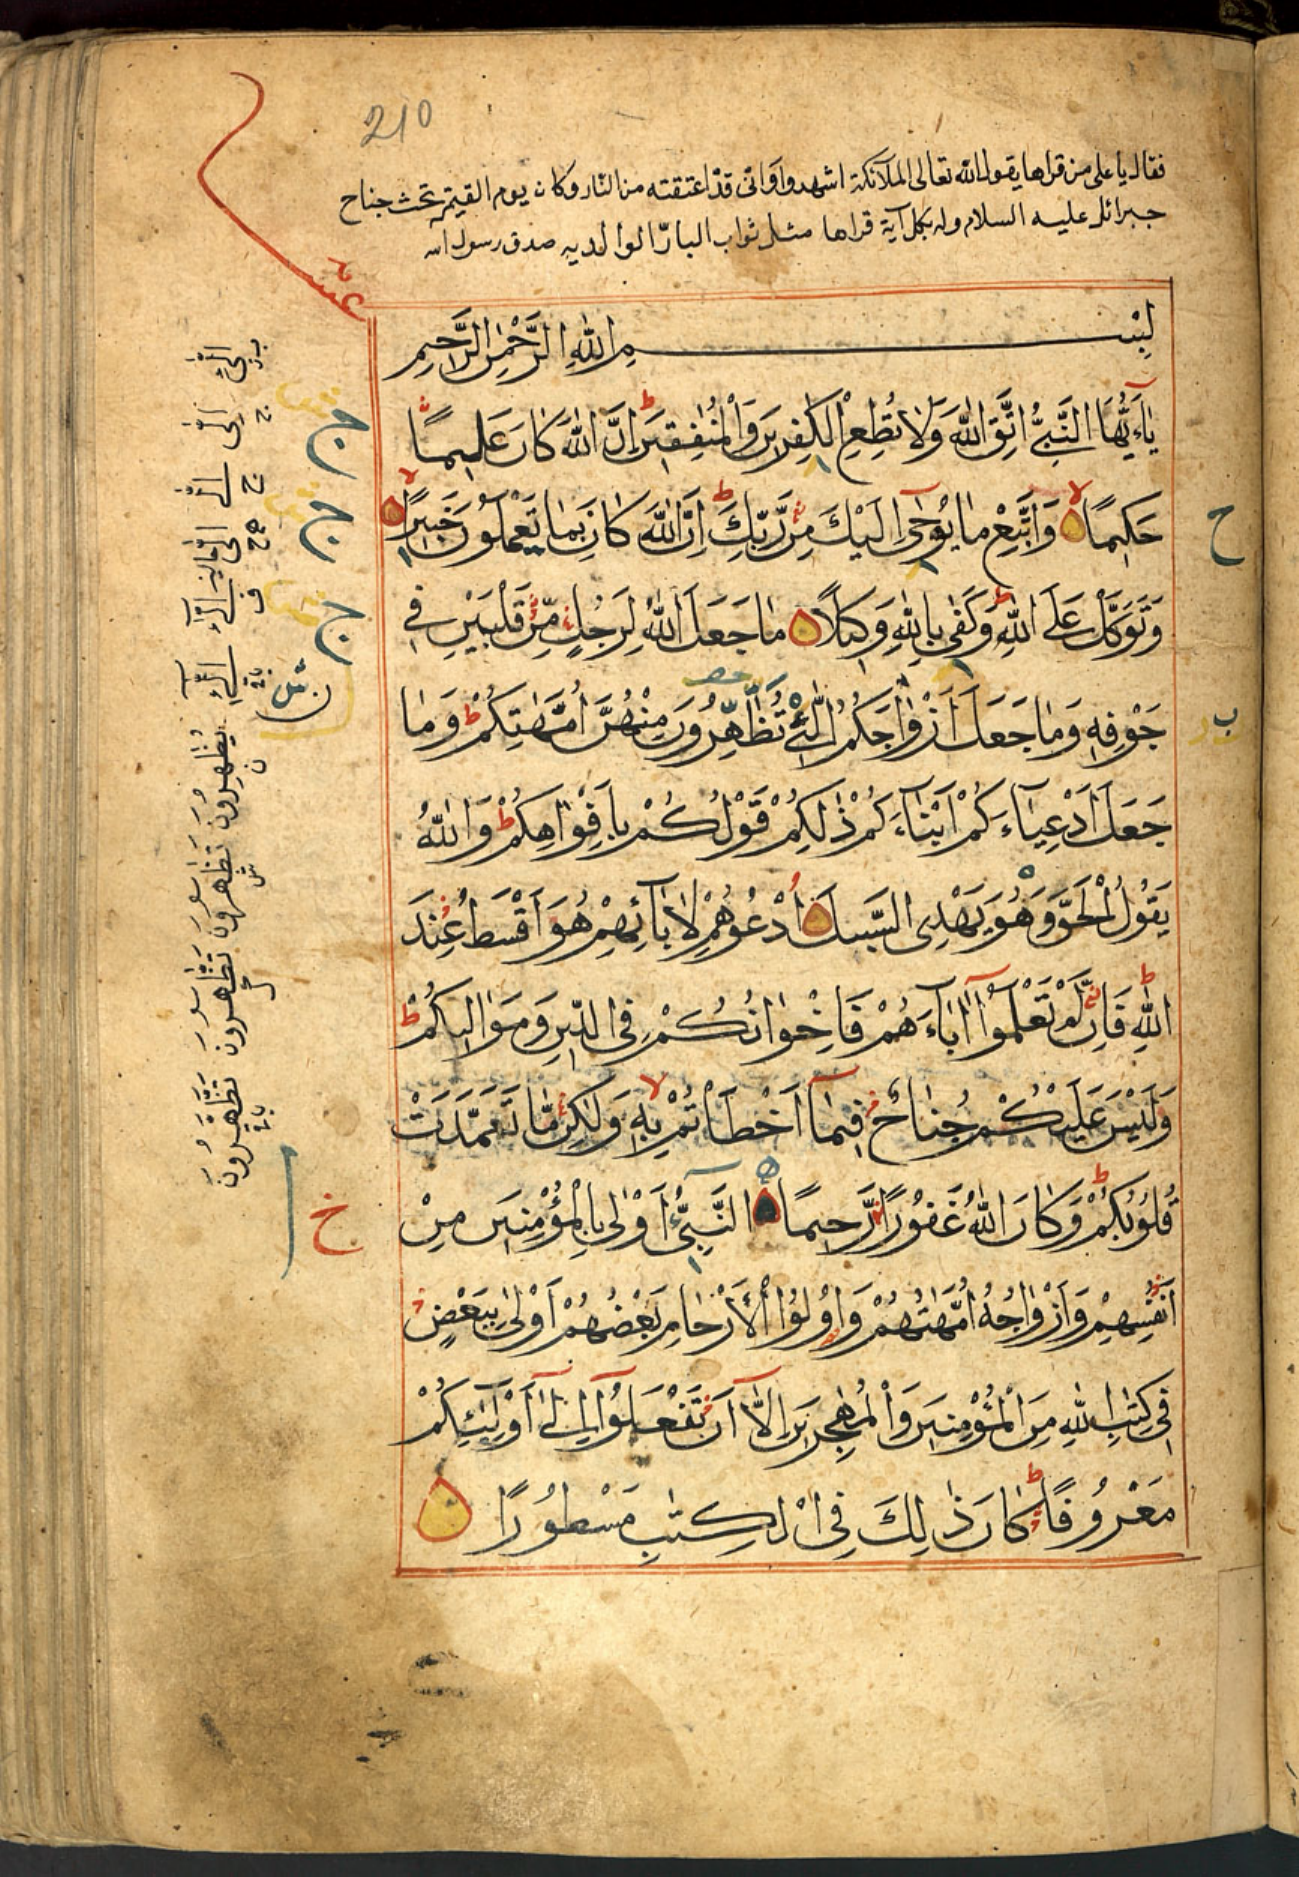 210
فقال يا على من قراها يقول الله تعالى الملآئكة اشهدوا وانى قد اعتقته من النار وكان يوم القيمة تحت جناح
جبرائل عليه السلام وله بكل آية قراها مثل ثواب البار الوالديه صدق رسول الله
عشر
بِسْمِ اللهِ الرَّحْمٰنِ الرَّحِيمِ
يٰاَيُّهَا النَّبِىُّ اتَّقِ اللهَ وَلَا تُطِعِ الْكٰفِرِينَ وَالْمُنٰفِقِينَ اِنَّ اللهَ كَانَ عَلِيمًا
حَكِيمًا وَاتَّبِعْ مَا يُوحٰى اِلَيْكَ مِنْ رَّبِّكَ اِنَّ اللهَ كَانَ بِمَا تَعْمَلُونَ خَبِيرًا
وَتَوَكَّلْ عَلَى اللهِ وَكَفٰى بِاللهِ وَكِيلًا مَا جَعَلَ اللهُ لِرَجُلٍ مِّنْ قَلْبَيْنِ فِى
جَوْفِهِ وَمَا جَعَلَ اَزْوٰاجَكُمُ الّٰئِى تُظَاهِرُونَ مِنْهُنَّ اُمَّهٰتِكُمْ وَمَا
جَعَلَ اَدْعِيَآءَكُمْ اَبْنَآءَكُمْ ذٰلِكُمْ قَوْلُكُمْ بِاَفْوٰاهِكُمْ وَاللهُ
يَقُولُ الْحَقَّ وَهُوَ يَهْدِى السَّبِيلَ اُدْعُوهُمْ لِاٰبَآئِهِمْ هُوَ اَقْسَطُ عِنْدَ
اللهِ فَاِنْ لَّمْ تَعْلَمُوا اٰبَآءَهُمْ فَاِخْوَانُكُمْ فِى الدِّينِ وَمَوَالِيكُمْ
وَلَيْسَ عَلَيْكُمْ جُنَاحٌ فِيمَآ اَخْطَاْتُمْ بِهِ وَلٰكِنْ مَّا تَعَمَّدَتْ
قُلُوبُكُمْ وَكَانَ اللهُ غَفُورًا رَّحِيمًا النَّبِىُّ اَوْلٰى بِالْمُؤْمِنِينَ مِنْ
اَنْفُسِهِمْ وَاَزْوٰاجُهُ اُمَّهٰتُهُمْ وَاُوْلُوا الْاَرْحَامِ بَعْضُهُمْ اَوْلٰى بِبَعْضٍ
فِى كِتٰبِ اللهِ مِنَ الْمُؤْمِنِينَ وَالْمُهٰجِرِينَ اِلَّآ اَنْ تَفْعَلُوٓا اِلٰٓى اَوْلِيَآئِكُمْ
مَعْرُوفًا كَانَ ذٰلِكَ فِى الْكِتٰبِ مَسْطُورًا
ح
ب
خ
يُظٰهِرُونَ
تَظّٰهَرُونَ
تَظَّهَّرُونَ